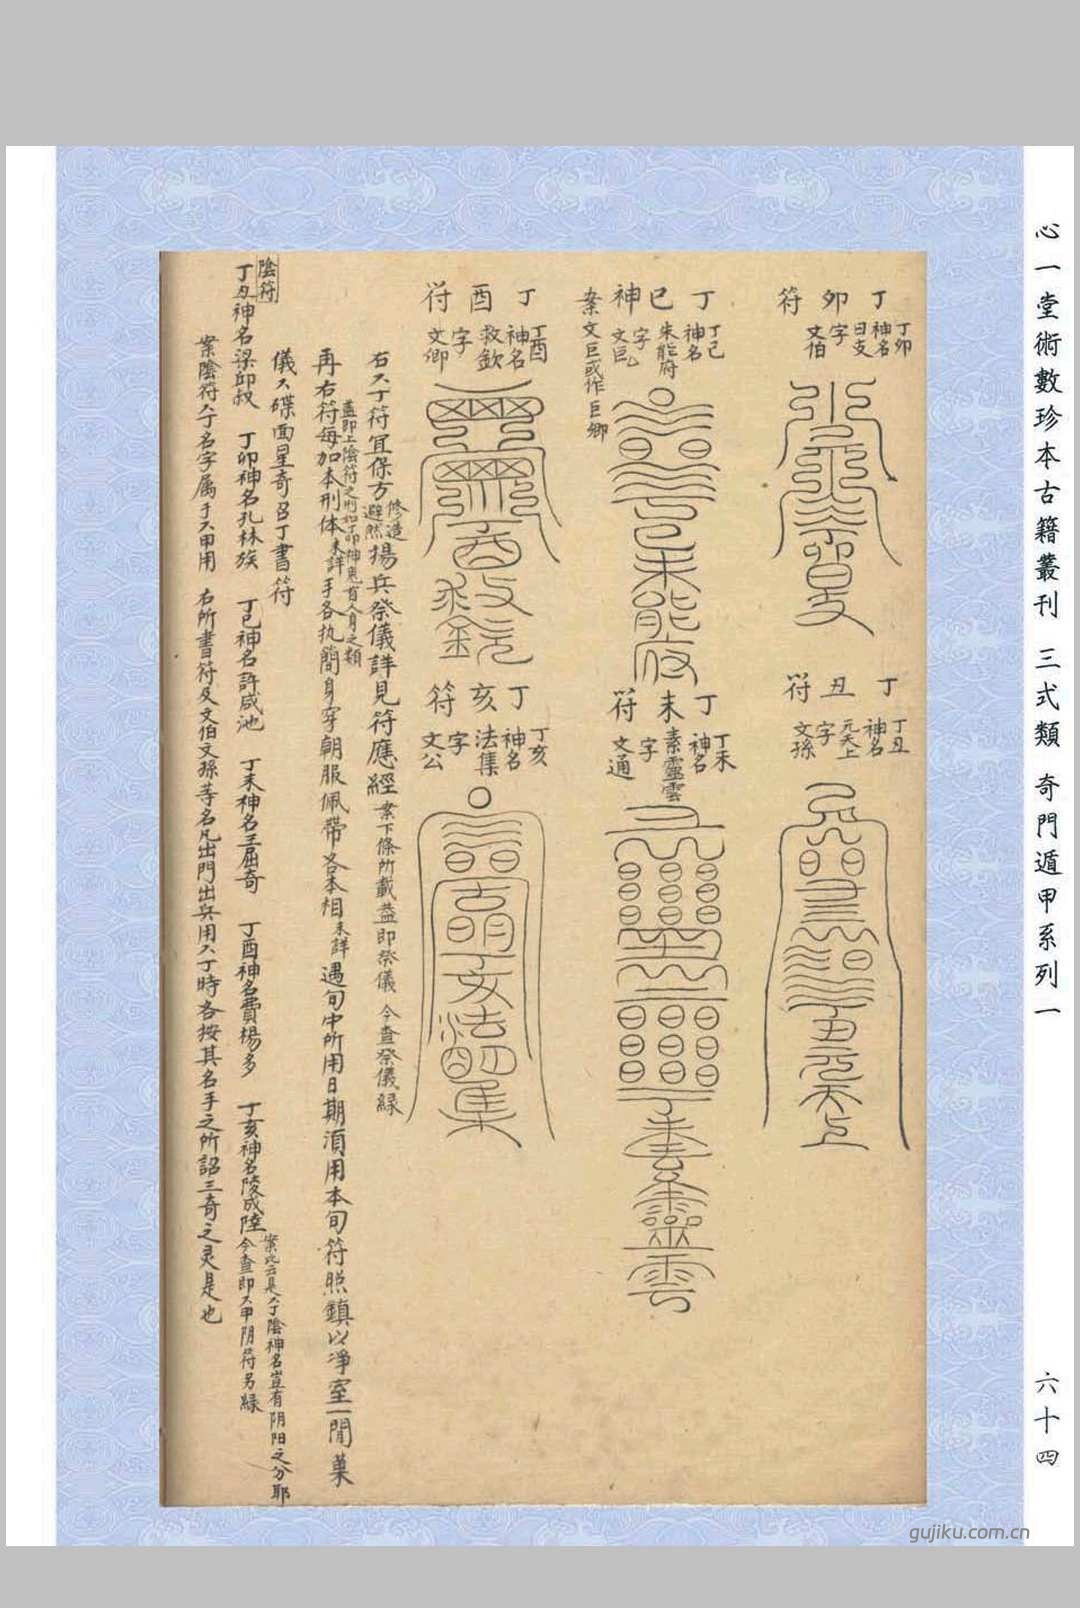 心一堂術數珍本古籍叢刊 三式類 奇門遁甲系列一
六十四
丁卯符
丁卯
神名
曰支
字
文伯
丁丑符
丁丑
神名
元天上
字
文孫
丁巳神
丁己
神名
朱能府
字
文巨
案文巨或作巨卿
丁未符
丁未
神名
素靈雲
字
文通
丁酉符
丁酉
神名
救欽
字
文卿
丁亥符
丁亥
神名
法集
字
文公
右六丁符宜保方修造避然揚兵祭儀詳見符應經案下條所載蓋即祭儀 今查祭儀緑
蓋即上陰符之刑如丁卯神兎首人身之類
再右符每加本刑体未詳手各执簡身穿朝服佩帶各本相未詳遇旬中所用日期湏用本旬符照鎮以净室一閒菓
儀六碟面星奇召丁書符
陰符
丁丑神名梁邱叔 丁卯神名孔林族 丁巳神名許咸池 丁未神名王屈奇 丁酉神名費楊多 丁亥神名陵成陸今查即六甲阴符另緑
案此云是六丁陰神名豈有阴阳之分耶
案陰符六丁名字属于六甲用 右所書符及文伯文孫等名凡出門出兵用六丁時各按其名手之所詔三奇之灵是也
gujiku.com.cn